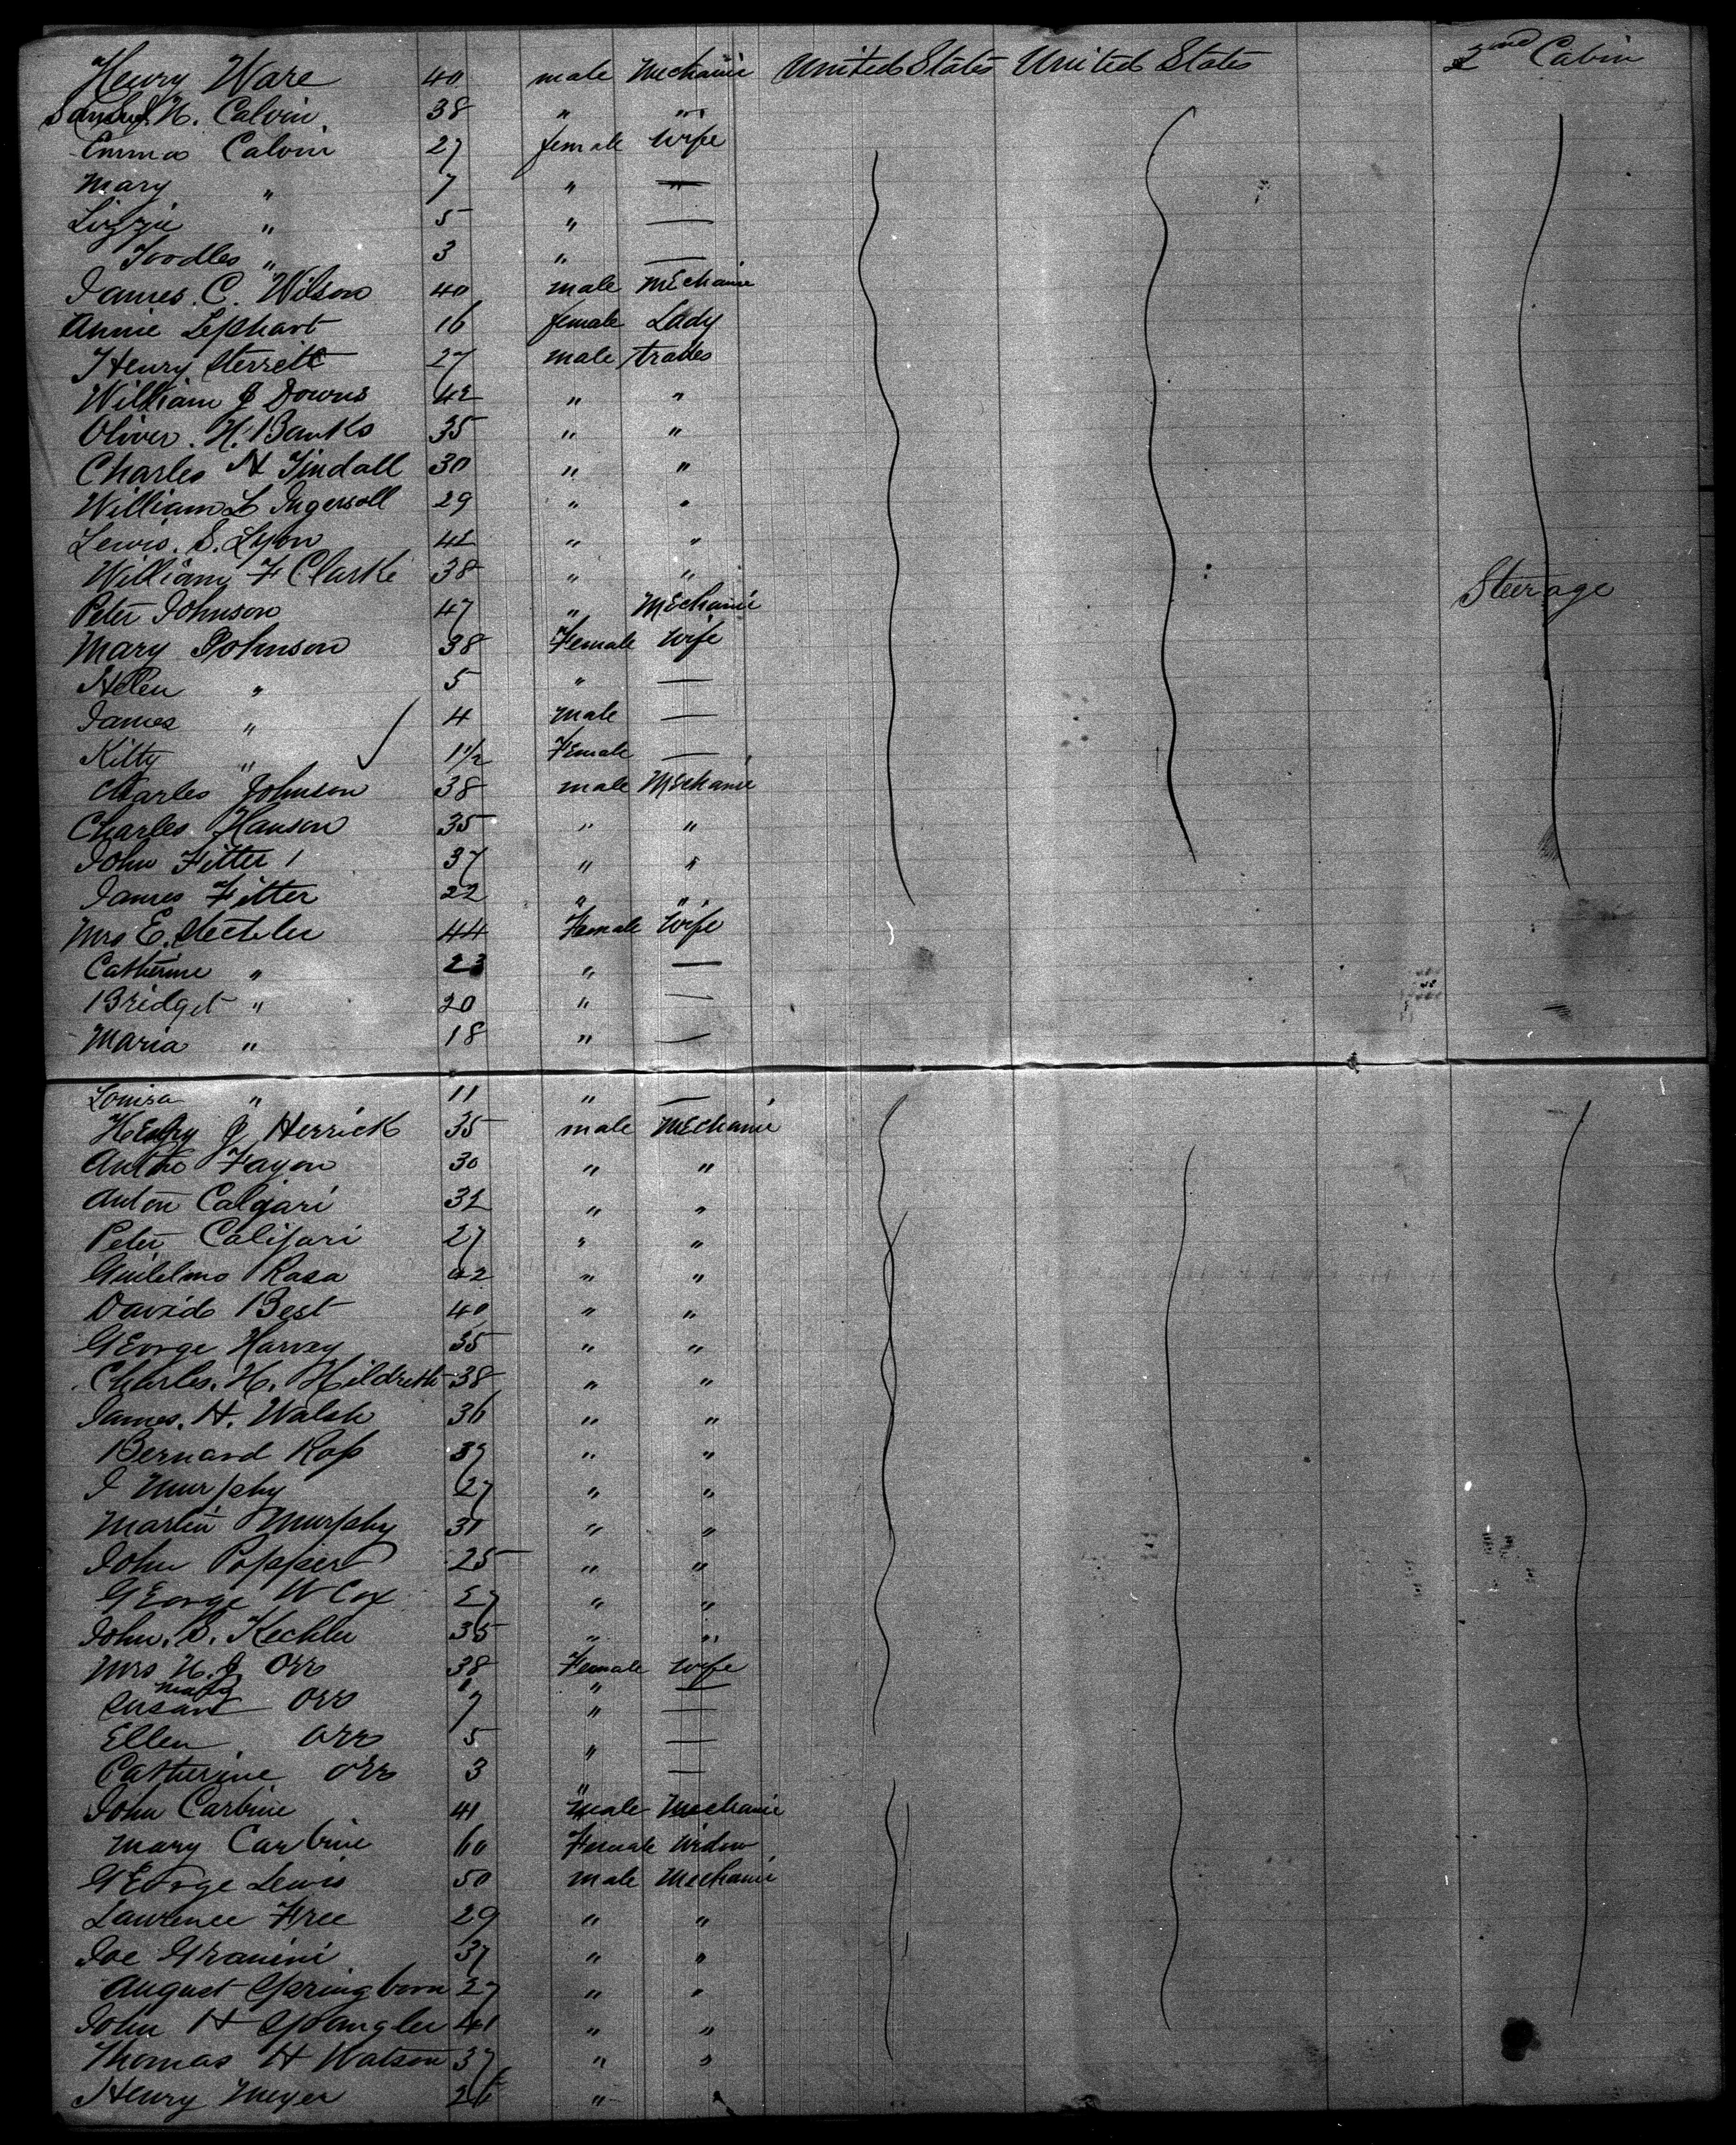 Henry Ware 40 male Mechanic United States United States 2nd Cabin
H. Calvin 38 " "
Emma Calvin 27 female Wife
Mary " 7 " —
Lizzie " 5 " —
Toodles " 3 " —
James. C. Wilson 40 male Mechanic
Annie Lephart 16 female Lady
Henry Sterrett 27 male trades
William J Downs 42 " "
Oliver. H. Banks 35 " "
Charles H Tindall 30 " "
William L Ingersoll 29 " "
Lewis. S. Lyon 42 " "
William F Clarke 38 " " Steerage
Peter Johnson 47 " Mechanic
Mary Johnson 38 Female Wife
Helen " 5 " —
James " 4 male —
Kitty " 1½ Female —
Charles Johnson 38 male Mechanic
Charles Hanson 35 " "
John Fitter 37 " "
James Fitter 22 " "
Mrs E. 44 Female Wife
Catherine " 23 " —
Bridget " 20 " —
Maria " 18 " —
Louisa " 11 " —
Henry J Herrick 35 male Mechanic
Fayon 30 " "
Anton Calgari 32 " "
Peter Caligari 27 " "
Guilelmo Rasa 42 " "
David Best 40 " "
George Harvay 35 " "
Charles. H. Hildreth 38 " "
James. H. Walsh 36 " "
Bernard Ross 39 " "
J Murphy 27 " "
Martin Murphy 31 " "
John Popper 25 " "
George W Cox 27 " "
John. S. Kechler 35 " "
Mrs H. J Orr 38 Female Wife
Mary " —
Susan Orr 7 " —
Ellen Orr 5 " —
Catherine Orr 3 " —
John Carbine 41 male Mechanic
Mary Carbine 60 Female Widow
George Lewis 50 male Mechanic
Lawrence Free 29 " "
Joe Granini 37 " "
August Springborn 27 " "
John H Spangler 41 " "
Thomas H Watson 37 " "
Henry Meyer 26 " "